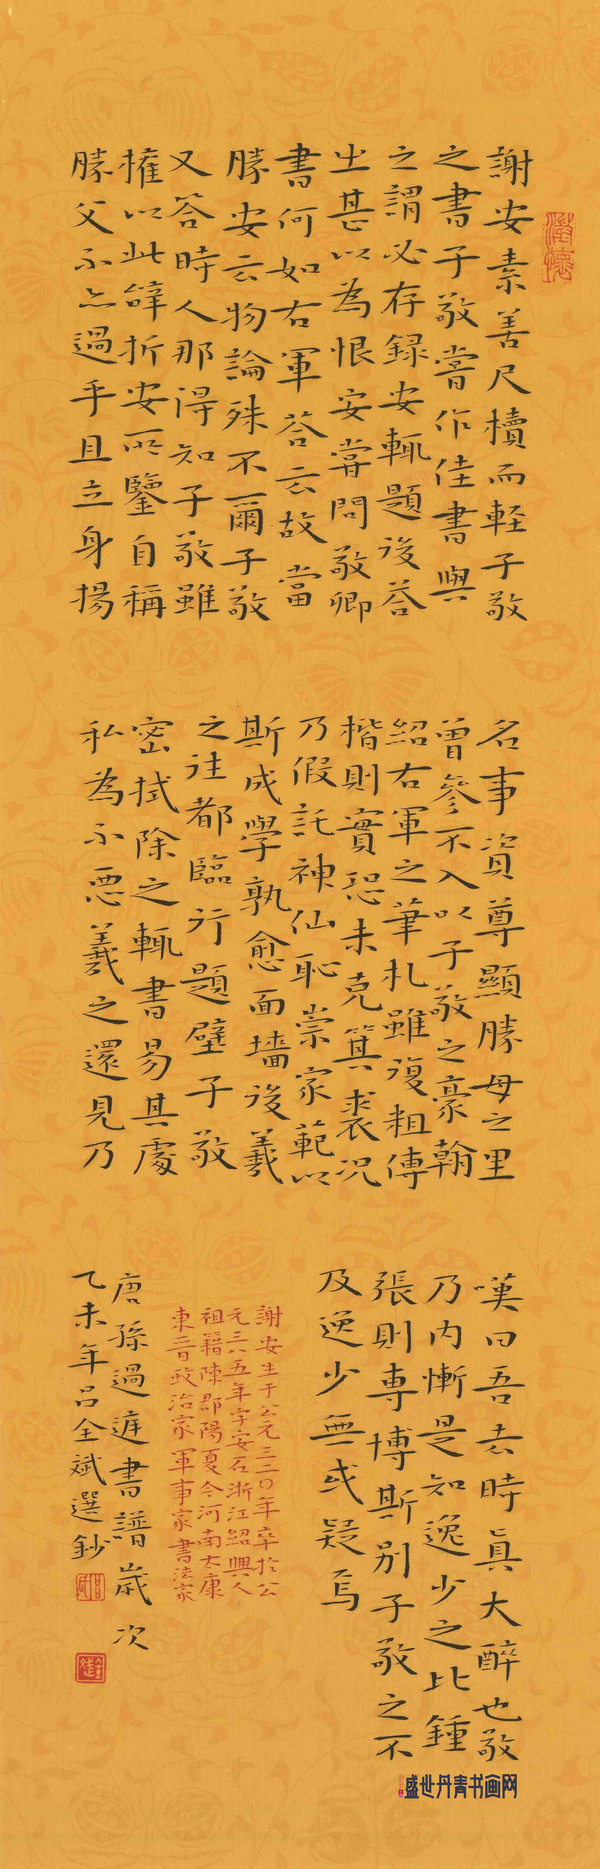 澄懷
謝安素善尺櫝而軽子敬
之書子敬嘗作佳書與
之謂必存録安輒題後荅
之甚以為恨安嘗問敬卿
書何如右軍荅云故當
勝安云物論殊不爾子敬
又荅時人那得知子敬雖
權以此辭折安所鑒自稱
勝父不亦過乎且立身揚
名事資尊顯勝母之里
曾參不入以子敬之豪翰
紹右軍之筆札雖復粗傳
楷則實恐未克箕裘況
乃假託神仙恥崇家範以
斯成學孰愈面墻後羲
之往都臨行題壁子敬
密拭除之輒書易其處
私為不惡羲之還見乃
嘆曰吾去時真大醉也敬
乃内慚是知逸少之比鍾
張則專博斯別子敬之不
及逸少無或疑焉
謝安生于公元三二〇年卒於公
元三八五年字安石浙江紹興人
祖籍陳郡陽夏今河南太康
東晉政治家軍事家書法家
唐孫過庭書譜歲次
乙未年呂全斌選鈔
盛世丹青书画网